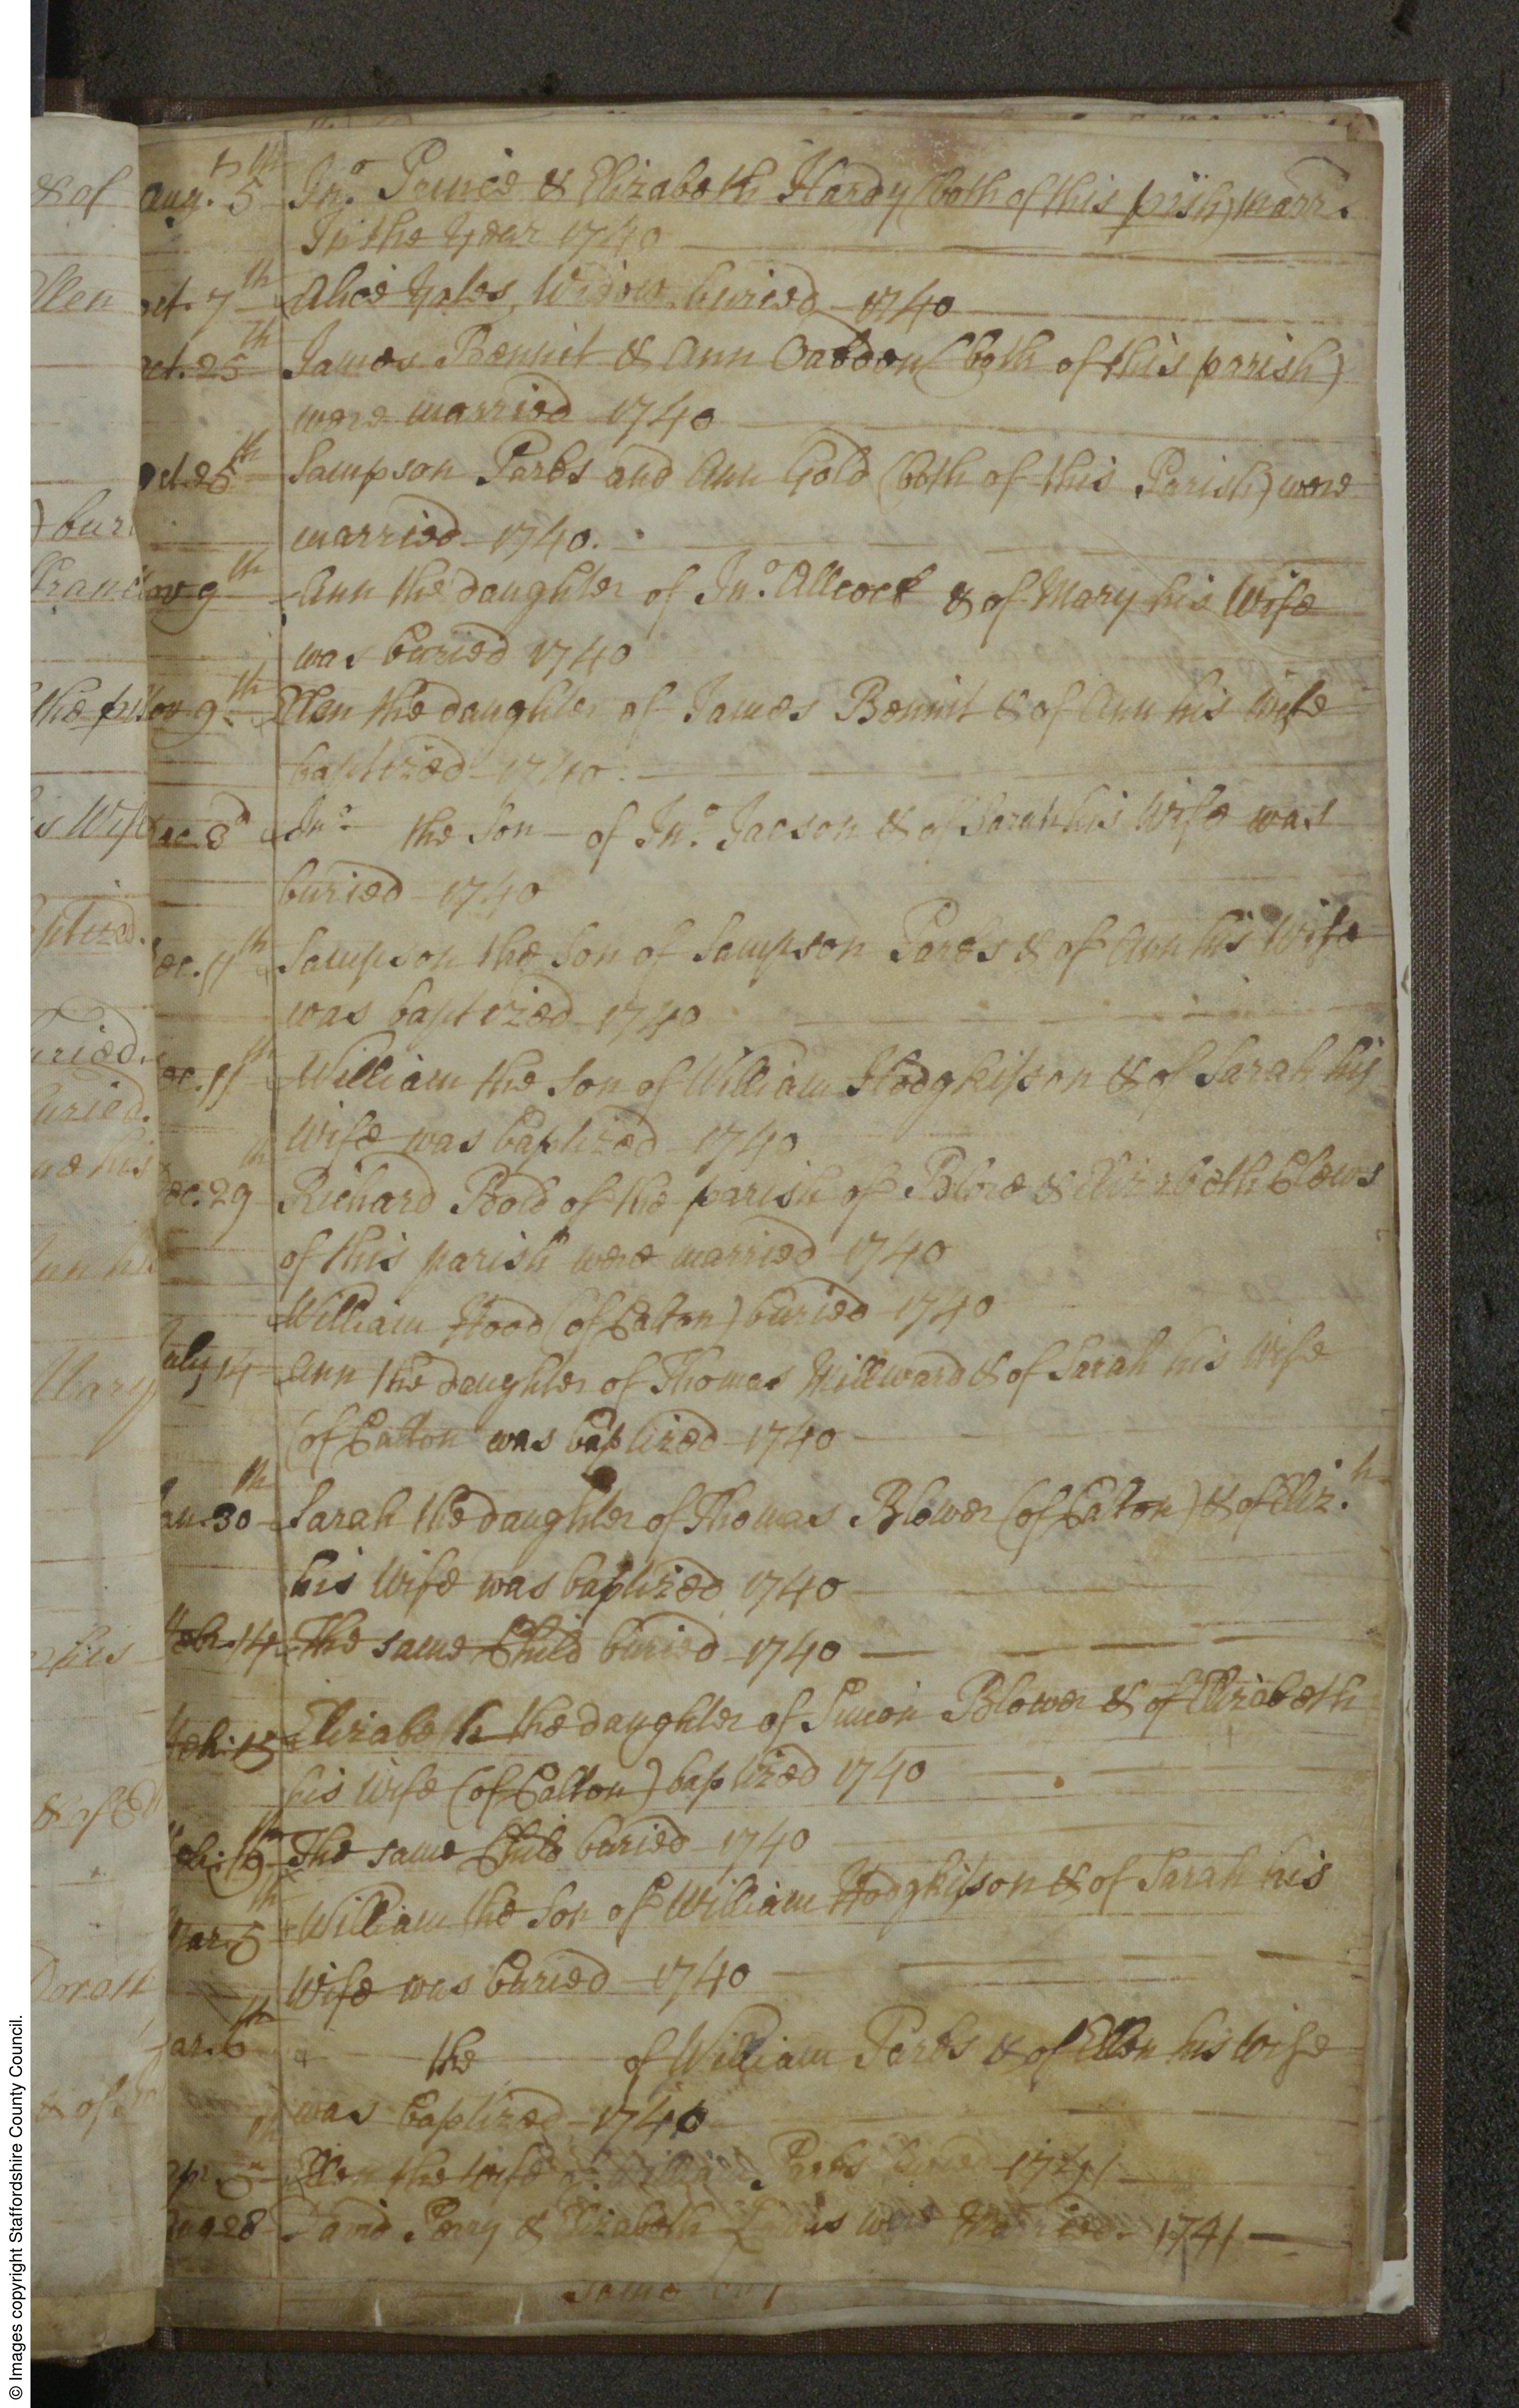 Aug. 5th Jno. & Elizabeth Hardy (both of this prish) marr.
In the Year 1740
Oct. 7th Alice Yales Widow buried 1740
Oct. 25th James Bennit & Ann (both of this parish)
were married 1740
Oct. 25th Sampson Parks and Ann Gold (both of this Parish) were
married 1740.
Nov 9th Ann the daughter of Jno. Allcock & of Mary his Wife
was buried 1740
Nov 9th Ellen the daughter of James Bennit & of Ann his wife
baptized 1740.
Dec. 3d Jno. the Son of Jno. Jacson & of Sarah his Wife was
buried 1740
Dec. 11th Sampson the Son of Sampson Parks & of Ann his Wife
was baptized 1740
Dec. 11th William the Son of William Hodgkisson & of Sarah his
Wife was baptized 1740
Dec. 29th Richard Bold of the parish of Blore & Elizabeth Clews
of this parish were married 1740
William Hood (of Calton) buried 1740
July 14 Ann the daughter of Thomas Millward & of Sarah his Wife
(of Calton was baptized 1740
Jan. 30th Sarah the daughter of Thomas Blower (of Calton) & of Eliz.h
his Wife was baptized 1740
Feb. 14 The same Child buried 1740
Feb. 15 Elizabeth the daughter of Simon Blower & of Elizabeth
his Wife (of Calton) baptized 1740
Feb. The same Child buried 1740
Mar. 5th William the Son of William Hodgkisson & of Sarah his
Wife was buried 1740
Mar. 6th the of William Parks & of Ellen his Wife
was baptized 1740
Apr. Ellen the Wife of William Parks 1741
Aug 28 David Perry & Elizabeth were Married 1741
© Images copyright Staffordshire County Council.